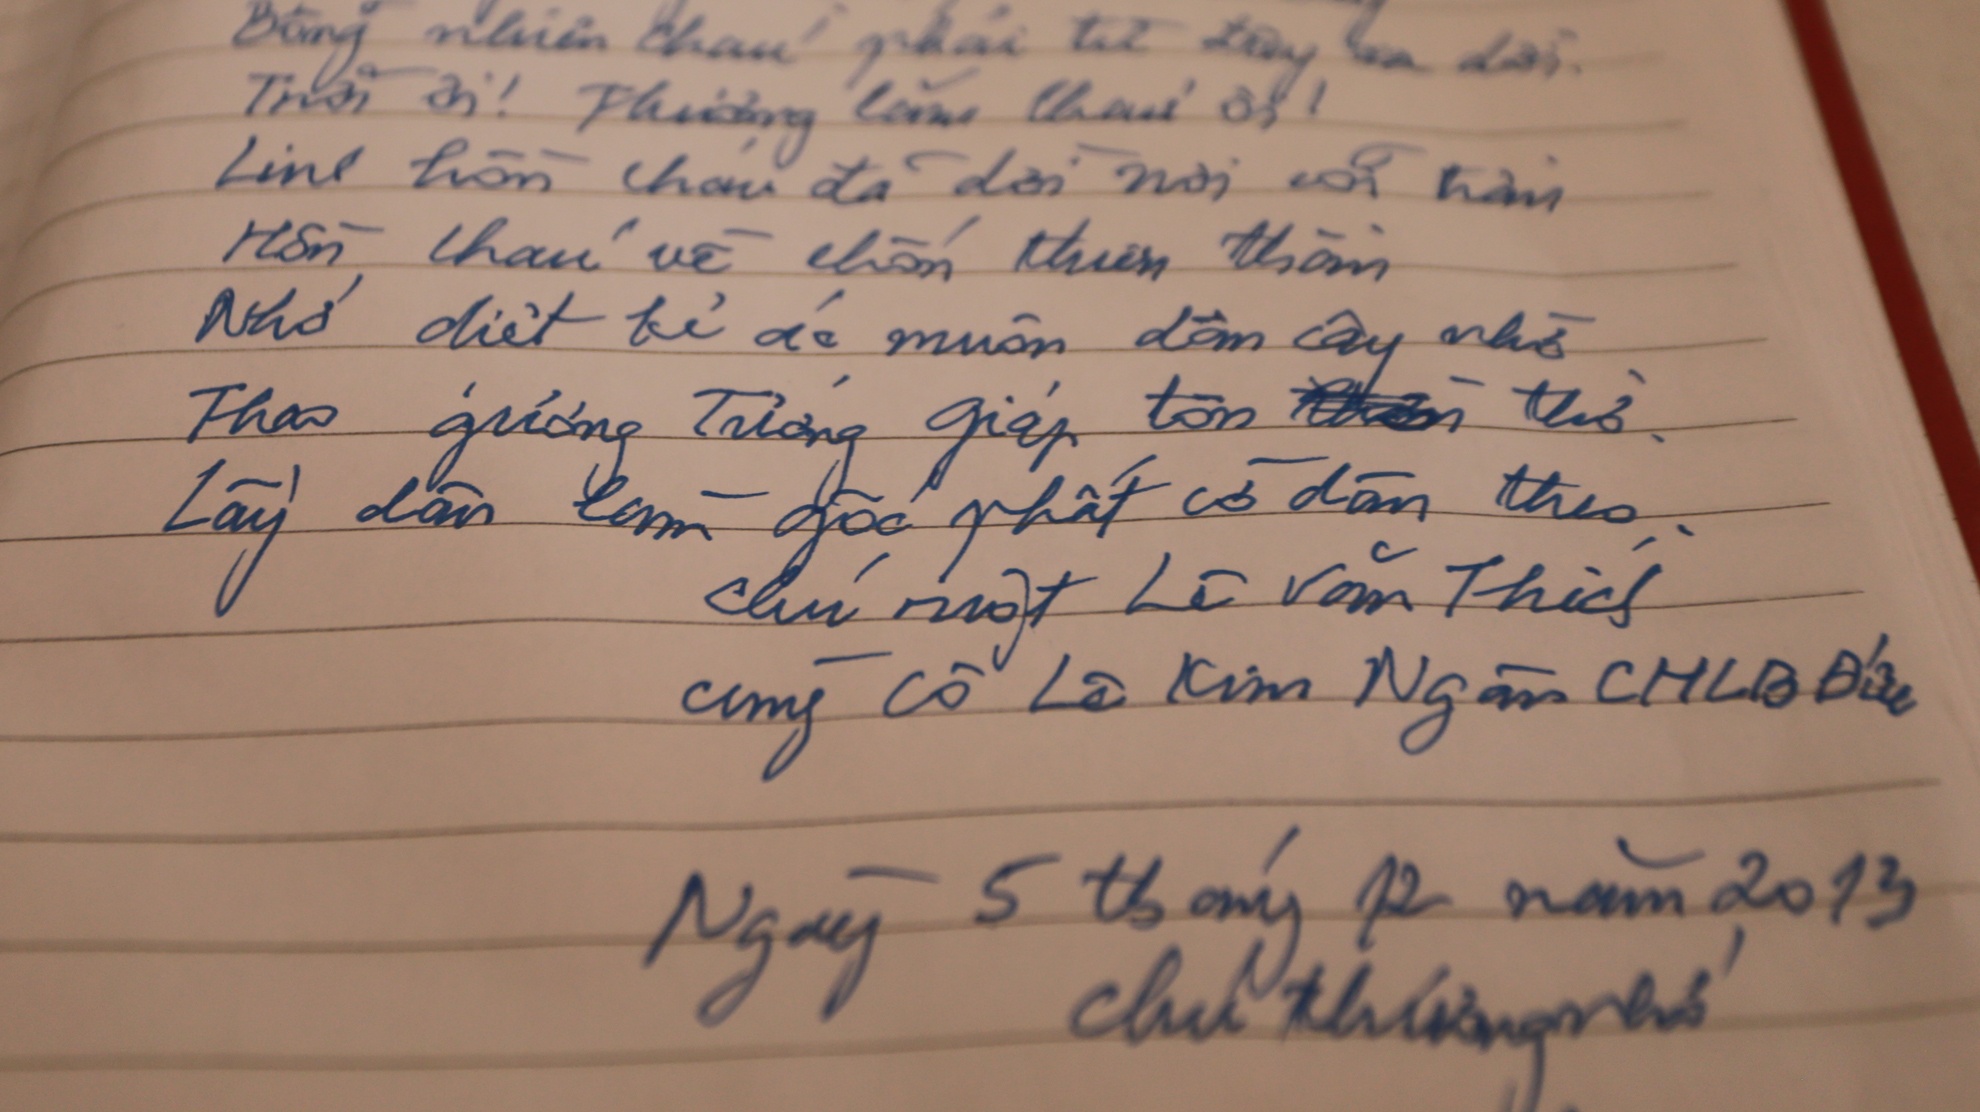 Bỗng nhiên cháu phải từ xa đời.
Trời ơi! Thương lắm cháu ơi!
Linh hồn cháu đã dời nơi cõi trần
Hồn cháu về chốn thiên thần
Nhớ diệt kẻ ác muôn dân cậy nhờ
Theo gương Tướng Giáp tôn thờ.
Lấy dân làm gốc phất cờ dân theo.
chú ruột Lê Văn Thích
cùng cô Lê Kim Ngân CHLB Đức
Ngày 5 tháng 12 năm 2013
chú thương nhớ